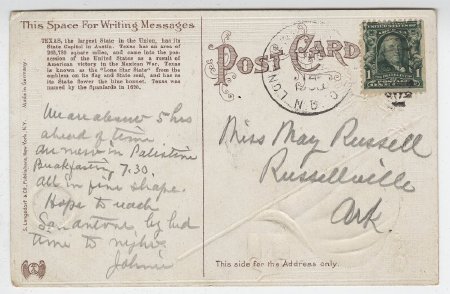 This Space For Writing Messages
TEXAS, the largest State in the Union, has its
State Capitol in Austin. Texas has an area of
265,780 square miles, and came into the pos-
session of the United States as a result of
American victory in the Mexican War. Texas
is known as the "Lone Star State" from the
emblem on its flag and State seal, and has as
its State flower the blue bonnet. Texas was
named by the Spaniards in 1690.
5 hrs
ahead of time
in Palestine
Breakfasting 7.30,
all in fine shape.
Hope to reach
San antone by bed
time to night.
Johnie
S. Langsdorf & Co., Publishers, New York, N.Y.
Made in Germany
POST CARD
LONG
N.B.
1
Miss May Russell
Russellville
Ark.
This side for the Address only.